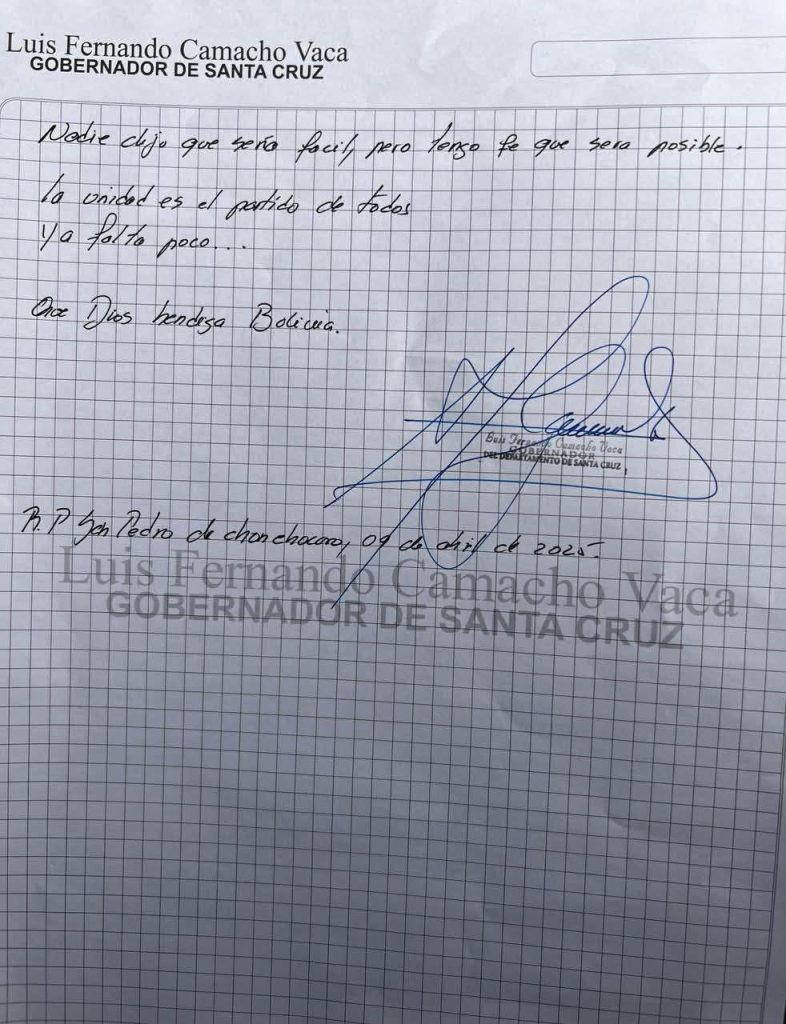 Luis Fernando Camacho Vaca
GOBERNADOR DE SANTA CRUZ
Nadie dijo que sería facil, pero tengo fe que sera posible.
la unidad es el partido de todos
Ya falta poco...
Que Dios bendiga Bolivia.
Luis Fernando Camacho Vaca
GOBERNADOR
DEL DEPARTAMENTO DE SANTA CRUZ
R.P San Pedro de chonchocoro, 09 de abril de 2025.
Luis Fernando Camacho Vaca
GOBERNADOR DE SANTA CRUZ